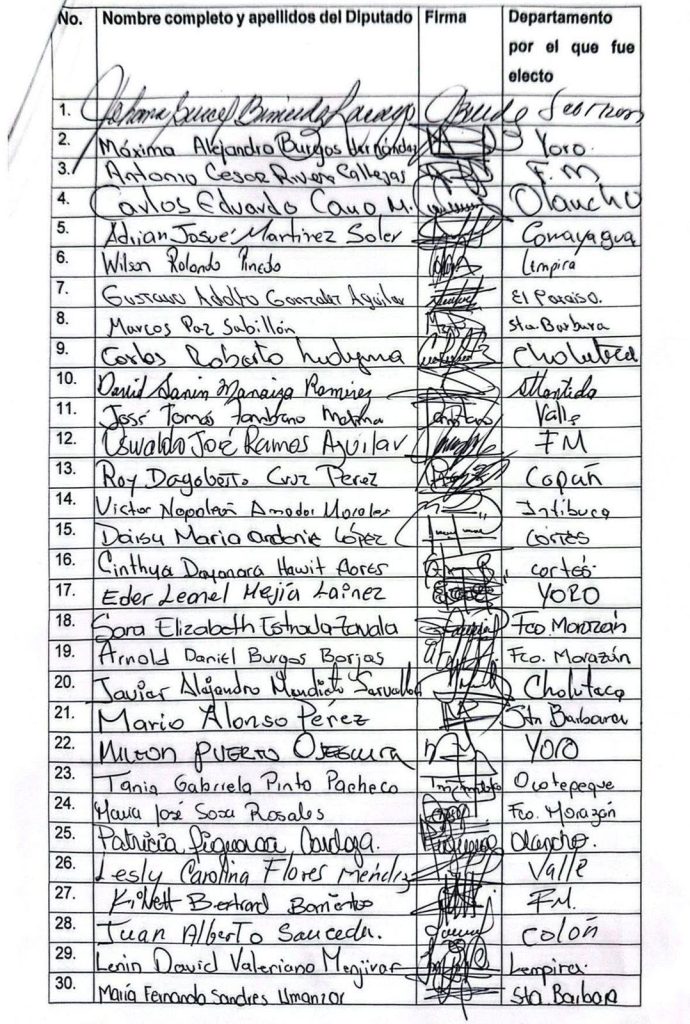 No. Nombre completo y apellidos del Diputado Firma Departamento
por el que fue
electo
1. Johana
2. Máxima Alejandro Burgos Hernández Yoro.
3. Antonio Cesar Rivera Callejas F.M
4. Carlos Eduardo Cano M. Olancho
5. Adrian Josué Martinez Soler Comayagua
6. Wilson Rolando Pineda Lempira
7. Gustavo Adolfo Gonzalez Aguilar El Paraíso.
8. Marcos Paz Sabillón Sta Barbara
9. Carlos Roberto Ledezma Choluteca
10. David Manaiza Ramirez Atlantida
11. José Tomas Zambrano Molina Valle
12. Oswaldo José Ramos Aguilar FM
13. Roy Dagoberto Cruz Perez Copán
14. Victor Napoleón Amador Morales Intibuca
15. Daisy Maria Andonie López Cortés
16. Cinthya Dayanara Hawit Flores Cortés
17. Eder Leonel Mejía Laínez YORO
18. Sara Elizabeth Estrada Zavala Fco Morazán
19. Arnold Daniel Burgos Borjas Fco. Morazán
20. Javier Alejandro Mendieta Choluteca
21. Mario Alonso Pérez Sta Barbara
22. Milton PUERTO OSEGUERA YORO
23. Tania Gabriela Pinto Pacheco Ocotepeque
24. Maria José Sosa Rosales Fco. Morazán
25. Patricia Figueroa Olancho.
26. Lesly Carolina Flores Mendez Valle
27. Kilvett Bertrand Barrientos F.M.
28. Juan Alberto Sauceda. Colón
29. Lenin David Valeriano Menjivar Lempira
30. María Fernanda Sandres Umanzor Sta. Barbara